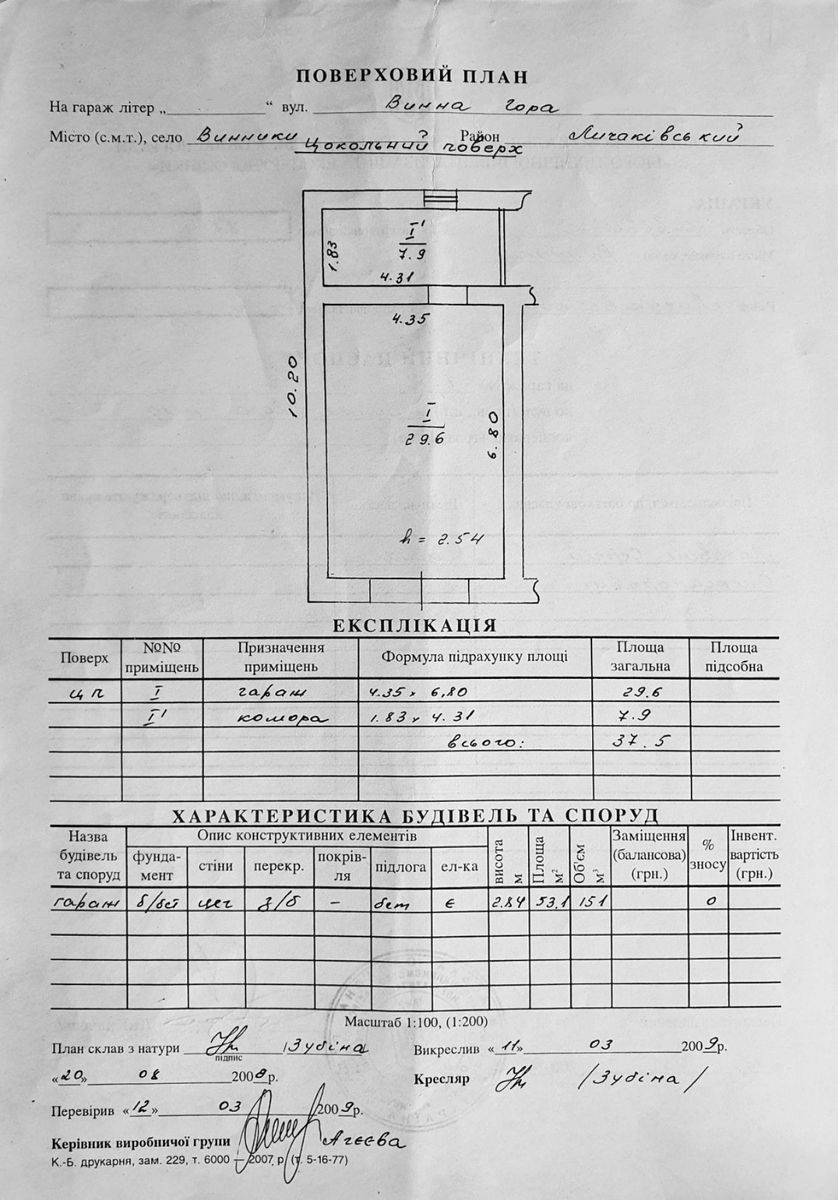 ПОВЕРХОВИЙ ПЛАН
На гараж літер „ “ вул. Винна Гора
Місто (с.м.т.), село Винники Район Личаківський
Цокольний поверх
I'
7.9
1.83
4.31
4.35
10.20
I
29.6
6.80
h = 2.54
ЕКСПЛІКАЦІЯ
Поверх №№ приміщень Призначення приміщень Формула підрахунку площі Площа загальна Площа підсобна
ц п I гараж 4.35 x 6.80 29.6
I' комора 1.83 x 4.31 7.9
всього: 37.5
ХАРАКТЕРИСТИКА БУДІВЕЛЬ ТА СПОРУД
Назва будівель та споруд Опис конструктивних елементів висота м Площа м² Об'єм м³ Заміщення (балансова) (грн.) % зносу Інвент. вартість (грн.)
фунда-мент стіни перекр. покрів-ля підлога ел-ка
гараж б/бет цег з/б – бет є 2.84 53.1 151 0
Масштаб 1:100, (1:200)
План склав з натури /Зубіна Викреслив «11» 03 2009р.
підпис
«20» 08 2008р. Кресляр /Зубіна/
Перевірив «12» 03 2009р.
Керівник виробничої групи Агєєва
К.-Б. друкарня, зам. 229, т. 6000 — 2007 р. (т. 5-16-77)